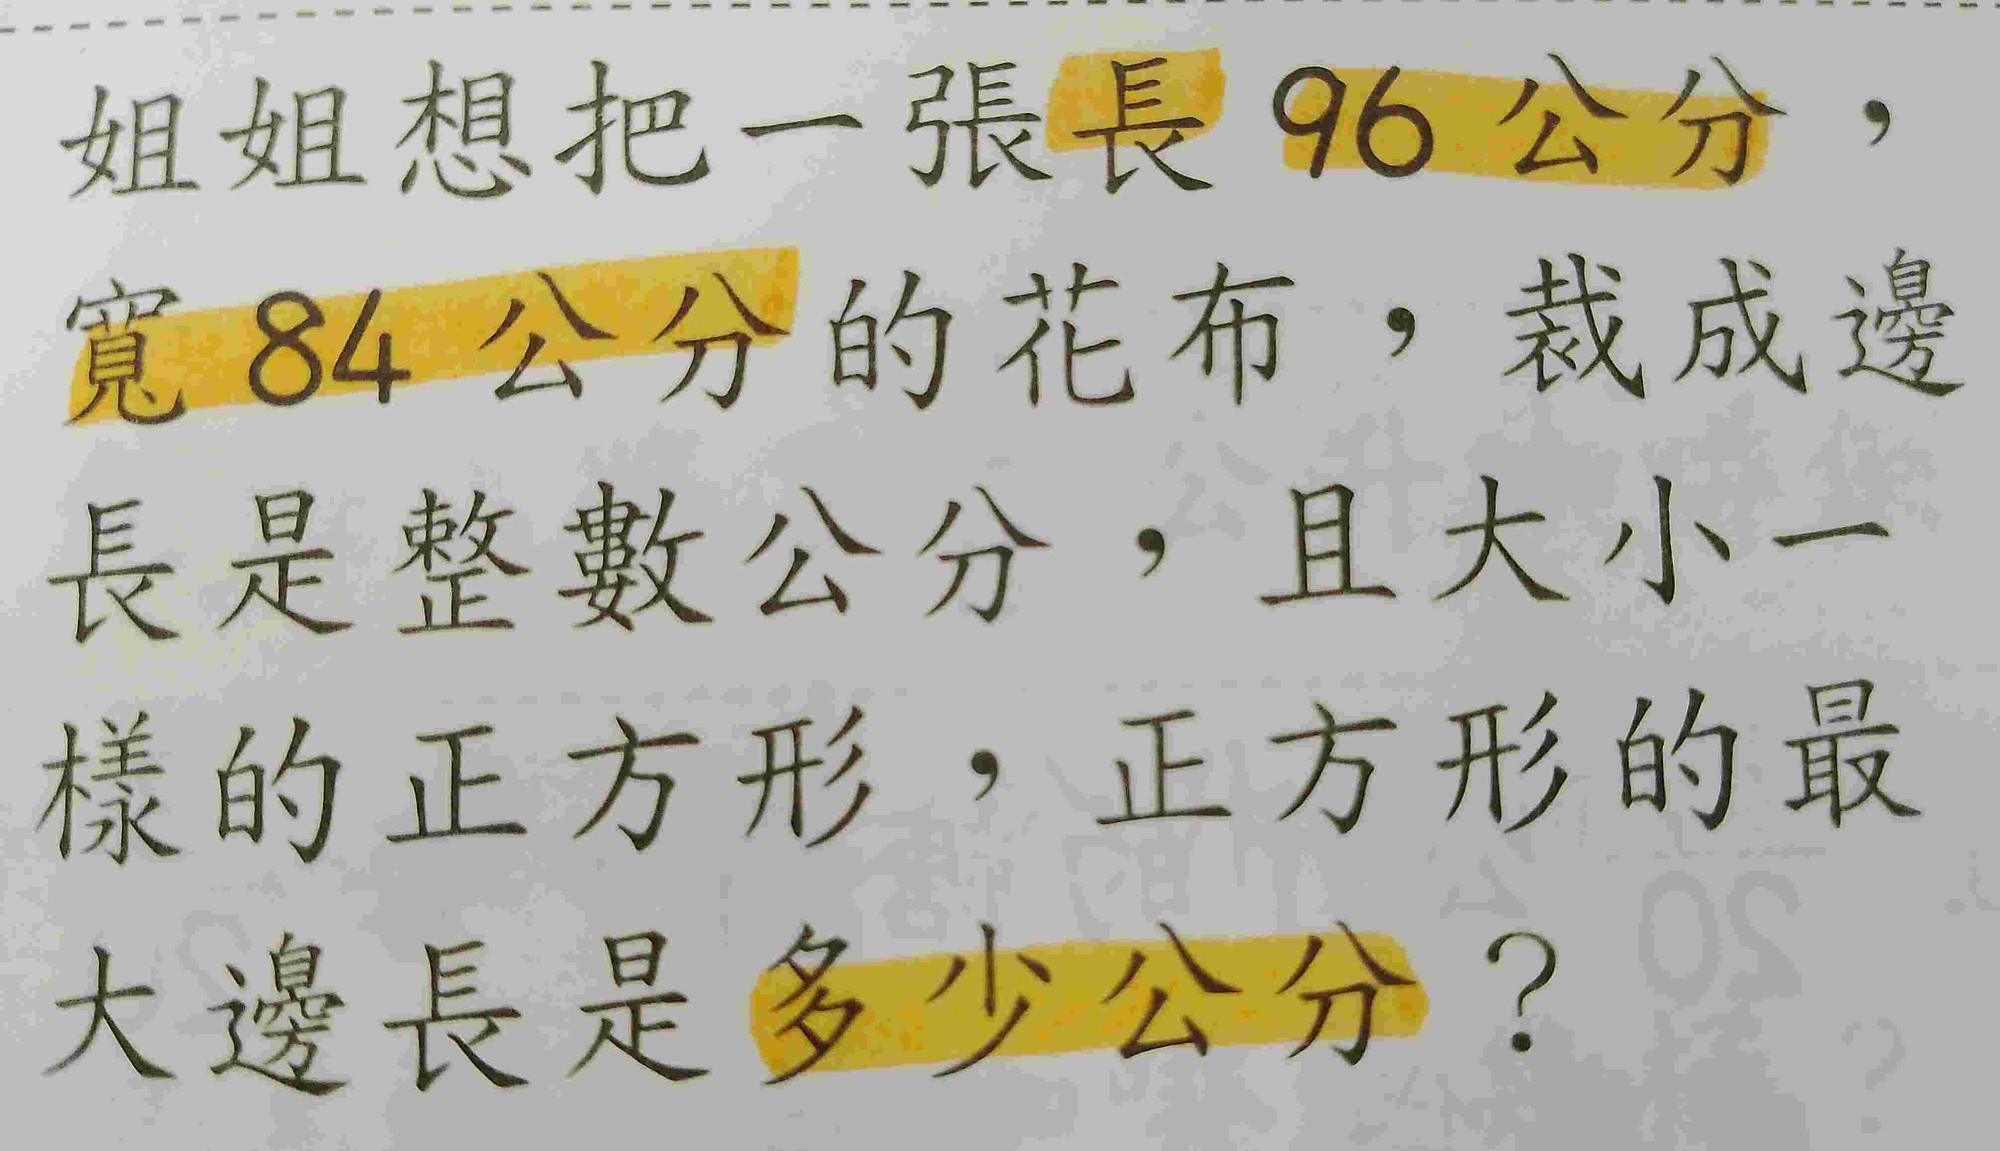 姐姐想把一張長96公分，
寬84公分的花布，裁成邊
長是整數公分，且大小一
樣的正方形，正方形的最
大邊長是多少公分？